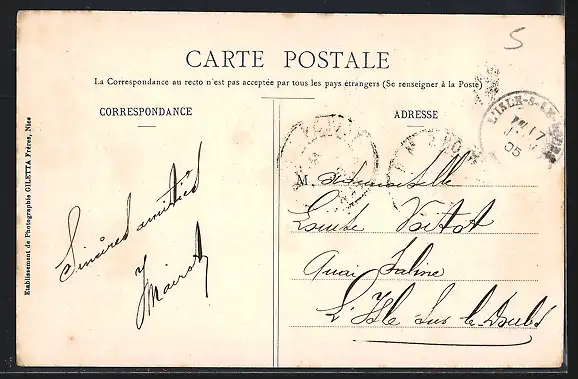 5
CARTE POSTALE
La Correspondance au recto n'est pas acceptée par tous les pays étrangers (Se renseigner à la Poste)
CORRESPONDANCE
ADRESSE
Etablissement de Photographie GILETTA Frères, Nice
Sincères amitiés
J Mairot
L'ISLE-S-LE-DOUBS
17
05
Mademoiselle
Louise Voitot
Quai Saline
L'Isle sur le Doubs